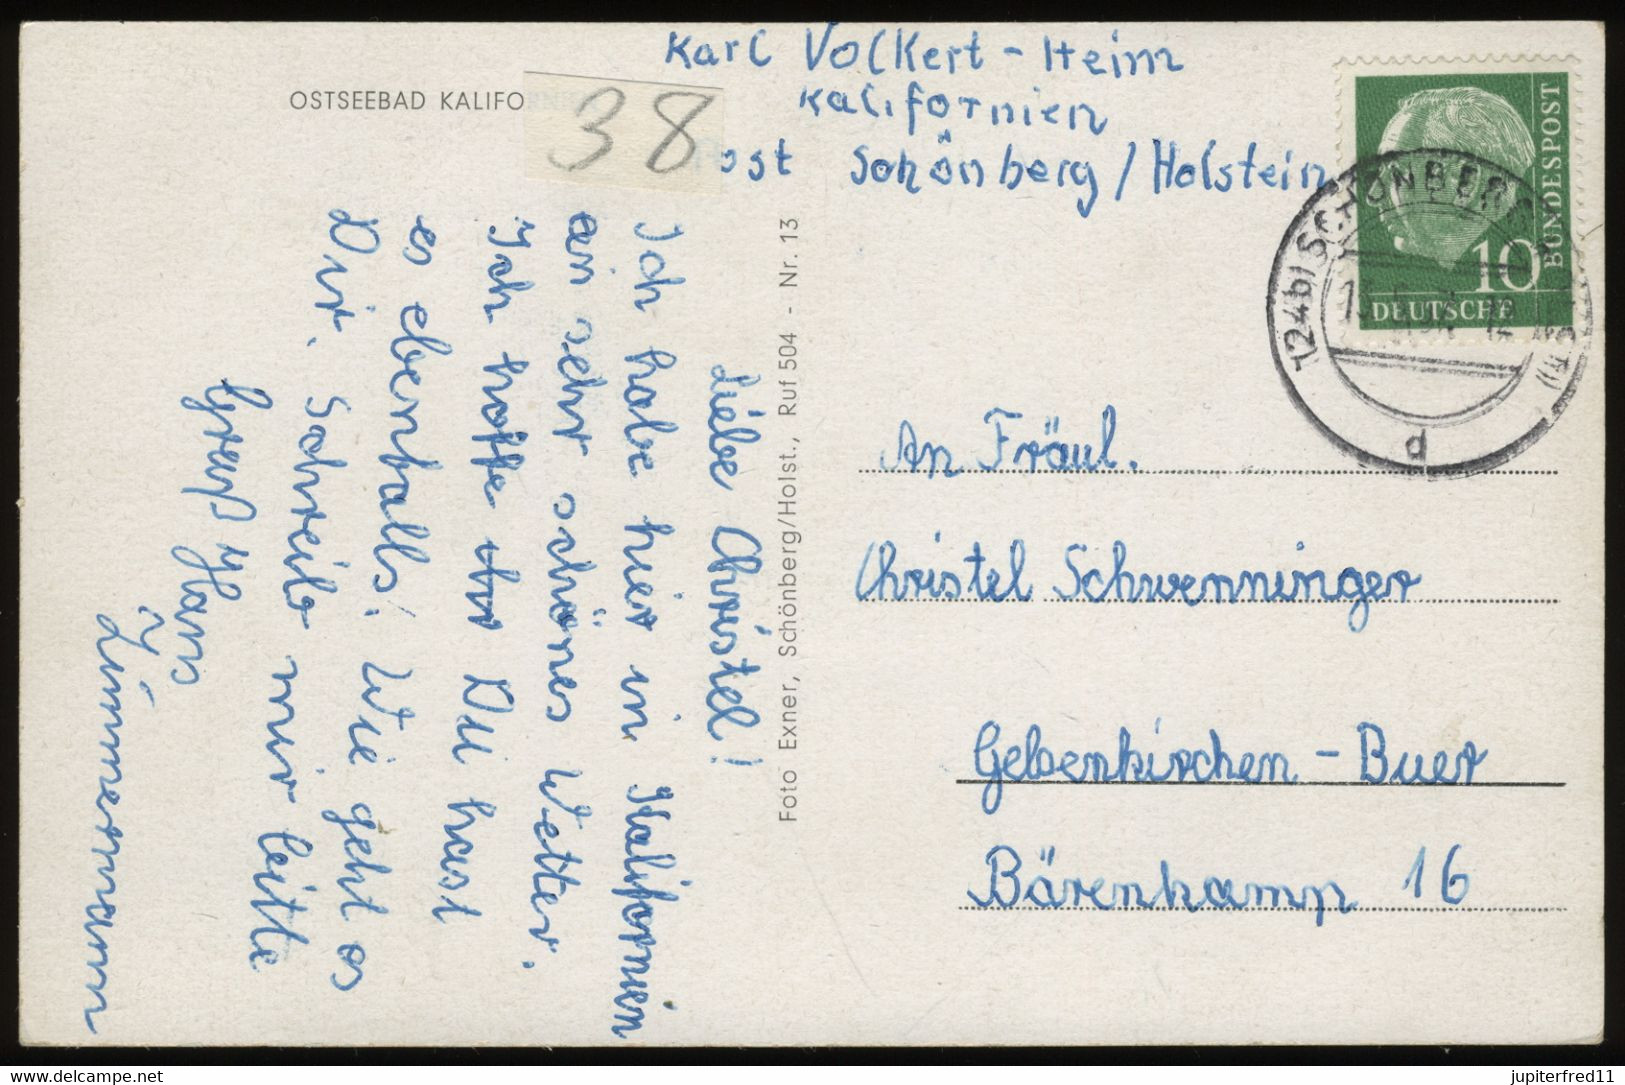 Karl Volkert - Heim
Kalifornien
Post Schönberg / Holstein
OSTSEEBAD KALIFO
38
BUNDESPOST
10
DEUTSCHE
(24b) SCHÖNBERG
d
Liebe Christel!
Ich habe hier in Kalifornien
ein sehr schönes Wetter.
Ich hoffe ihr Du hast
es ebenfalls! Wie geht es
Dir. Schreib mir bitte
Gruß Hans
Zimmermann
Foto Exner, Schönberg/Holst., Ruf 504 - Nr. 13
An Fräul.
Christel Schwenninger
Gelsenkirchen - Buer
Bärenkamp 16
www.delcampe.net
jupiterfred11